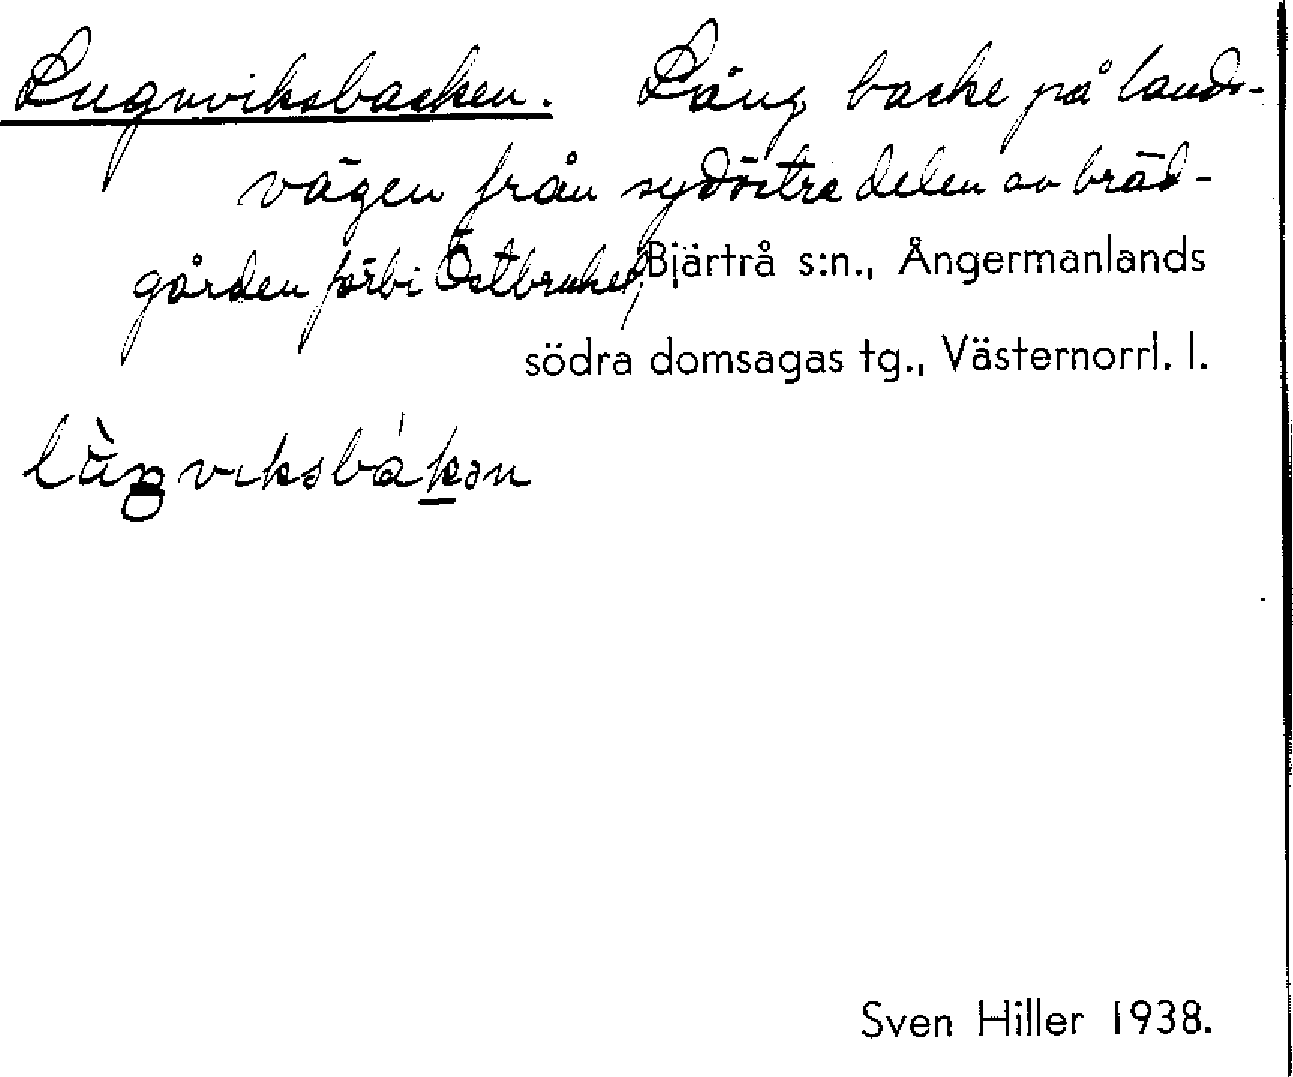 Lugnviksbacken. Lång backe på lands-
vägen från sydöstra delen av bräd-
gården förbi Östbruket, Bjärtrå s:n., Ångermanlands
södra domsagas tg., Västernorrl. l.
lùŋviksbákən
Sven Hiller 1938.